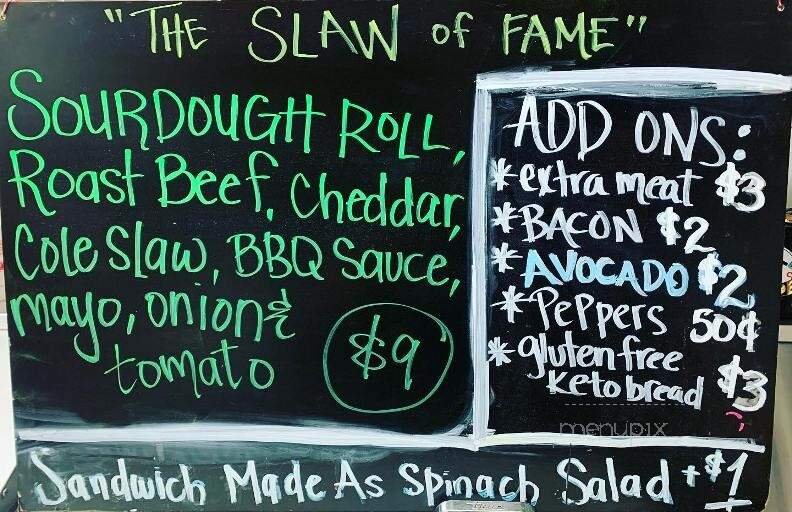 "THE SLAW of FAME"
SOURDOUGH ROLL,
Roast Beef, Cheddar,
Cole Slaw, BBQ Sauce,
mayo, onion &
tomato
$9
ADD ONS:
* extra meat $3
* BACON $2
* AVOCADO $2
* Peppers 50¢
* gluten free
Keto bread $3
menupix
Sandwich Made As Spinach Salad + $1